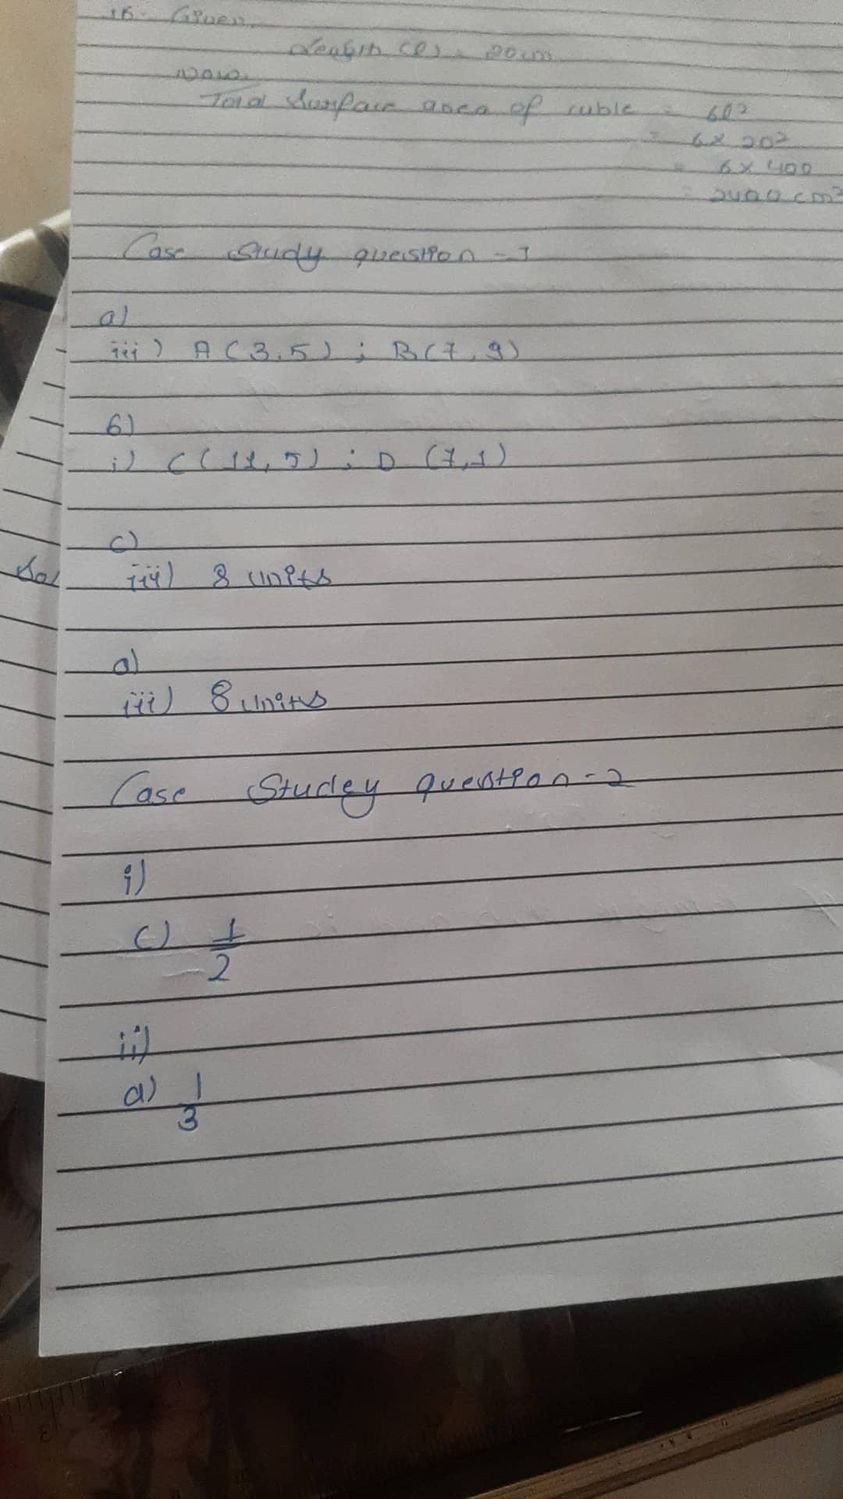 16. Given.
Length (l) = 20cm
Now.
Total Surface area of cuble = 6l²
= 6 x 20²
= 6 x 400
= 2400 cm²
Case Study question - 1
a)
iii) A (3, 5) ; B (7, 9)
b)
i) C (11, 5) ; D (7, 1)
c)
iii) 8 units
d)
iii) 8 units
Case Studey question - 2
i)
c) 1/2
ii)
a) 1/3